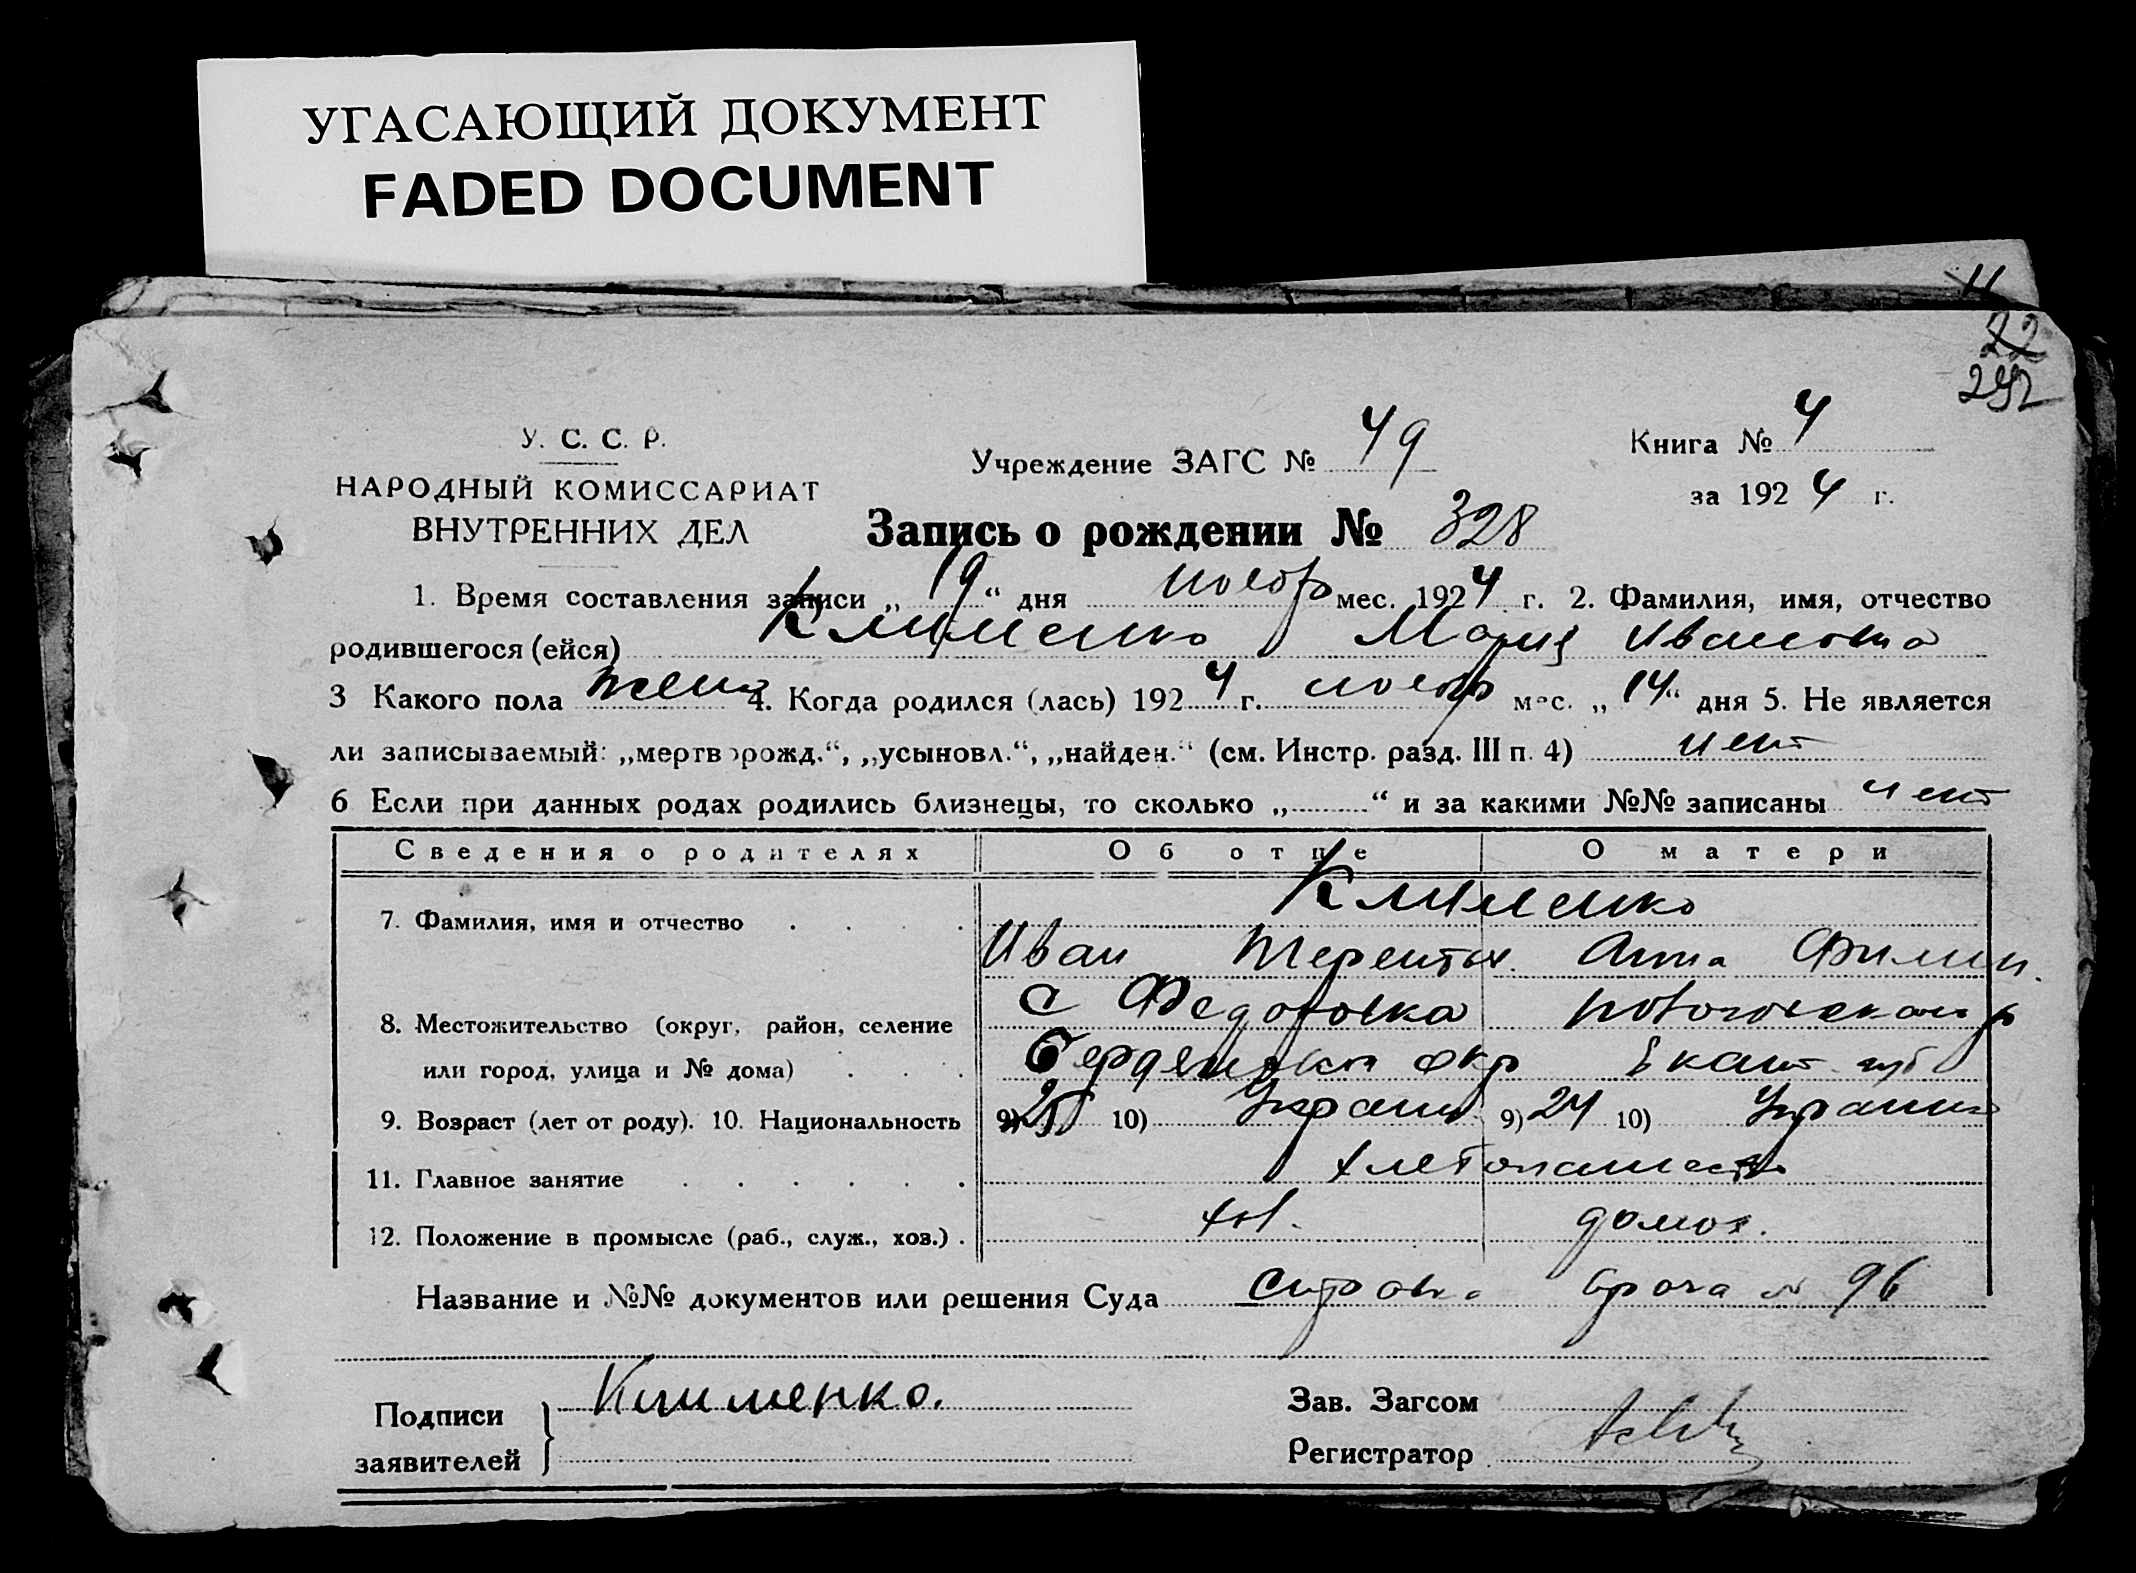 УГАСАЮЩИЙ ДОКУМЕНТ
FADED DOCUMENT
11
22
292
У. С. С. Р.
НАРОДНЫЙ КОМИССАРИАТ
ВНУТРЕННИХ ДЕЛ
Учреждение ЗАГС № 49
Книга № 4
за 1924 г.
Запись о рождении № 328
1. Время составления записи „19“ дня ноябр мес. 1924 г. 2. Фамилия, имя, отчество
родившегося (ейся) Клименко Мария Ивановна
3 Какого пола жен 4. Когда родился (лась) 1924 г. ноябр мес. „14“ дня 5. Не является
ли записываемый: „мертворожд.“, „усыновл.“, „найден.“ (см. Инстр. разд. III п. 4) нет
6 Если при данных родах родились близнецы, то сколько „ “ и за какими №№ записаны нет
Сведения о родителях Об отце О матери
7. Фамилия, имя и отчество Клименко
Иван Терентьев. Анна Филип.
8. Местожительство (округ, район, селение с Федоровка
или город, улица и № дома) Бердянский окр Екат. губ
9. Возраст (лет от роду). 10. Национальность 9) 25 10) Украин 9) 24 10) Украинка
11. Главное занятие хлебопашество
12. Положение в промысле (раб., служ., хоз.) хоз. домох.
Название и №№ документов или решения Суда Справка врача № 96
Подписи заявителей Клименко.
Зав. Загсом
Регистратор